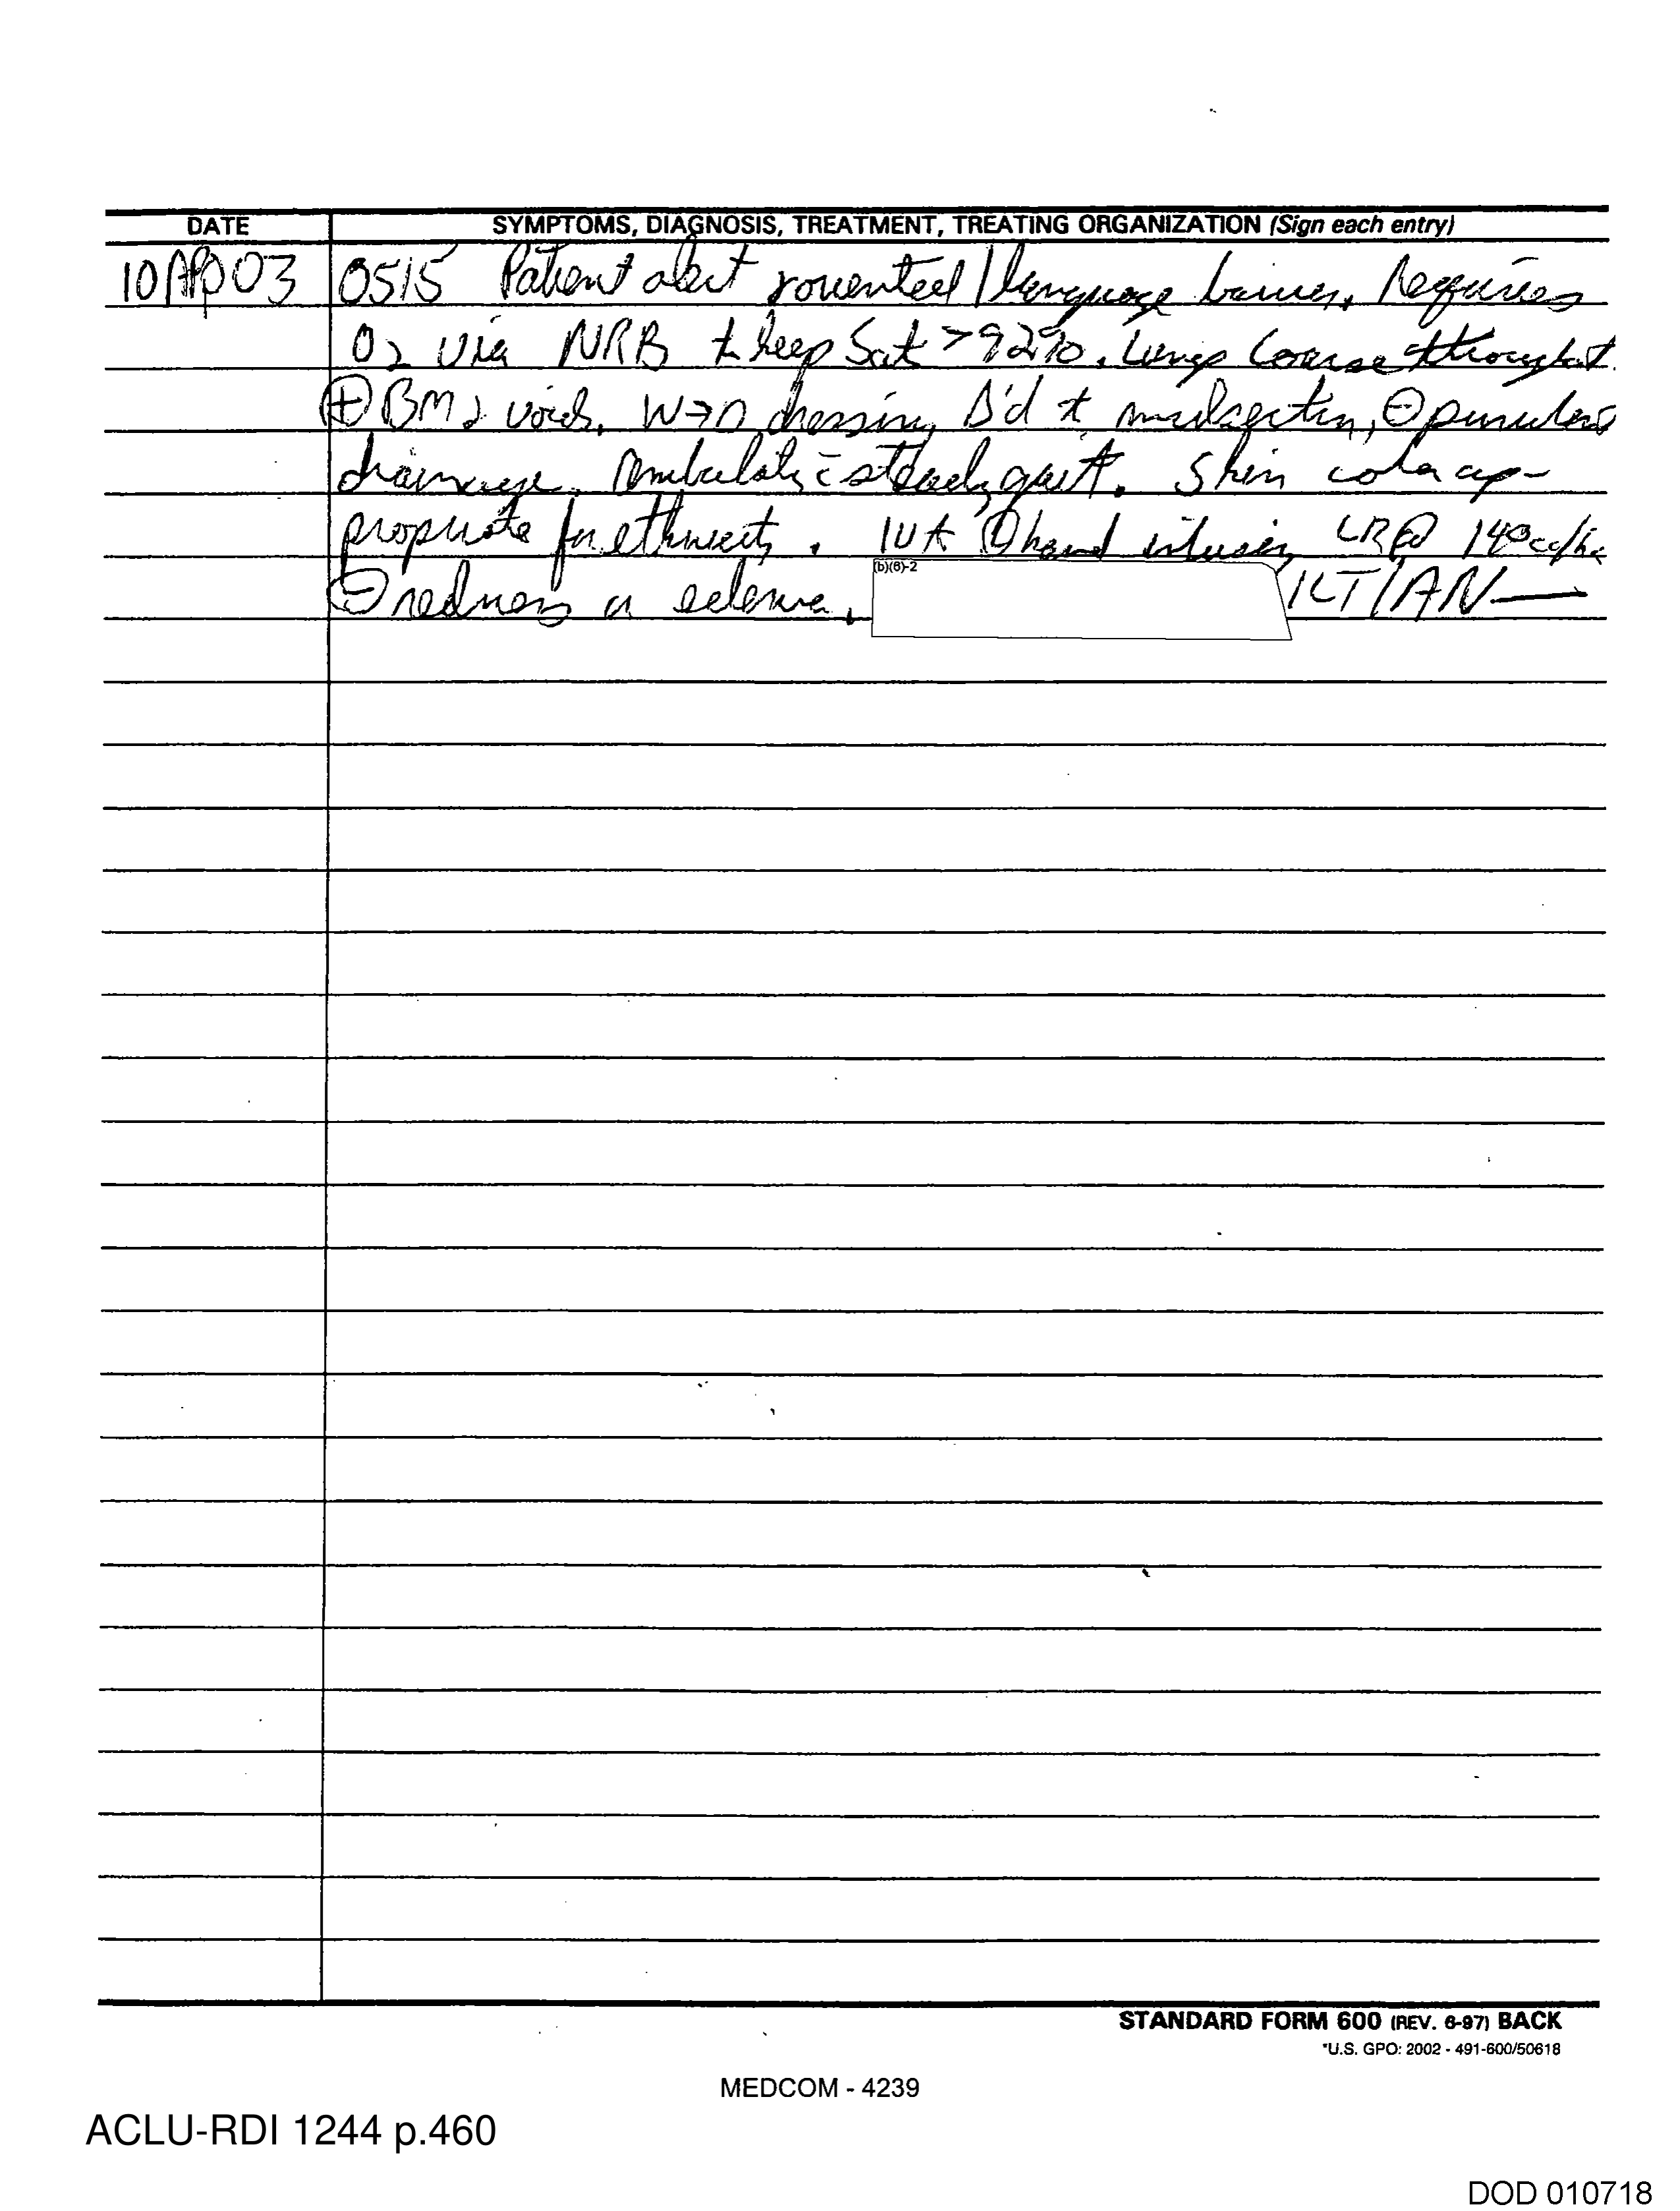 DATE SYMPTOMS, DIAGNOSIS, TREATMENT, TREATING ORGANIZATION (Sign each entry)
10 Apr 03 0515 Patient alert oriented / language barrier. Requires
O2 via NRB to keep Sat >92%. Lungs Coarse throughout.
⊕ BM & voids. W→D dressing Δ'd to midsection, ⊖ purulent
drainage. Ambulates c̄ steady gait. Skin color ap-
propriate for ethnicity. IV (L) hand infusing LR @ 140cc/hr
⊖ redness or edema.
(b)(6)-2
1LT/AN
STANDARD FORM 600 (REV. 6-97) BACK
*U.S. GPO: 2002 - 491-600/50618
MEDCOM - 4239
ACLU-RDI 1244 p.460
DOD 010718